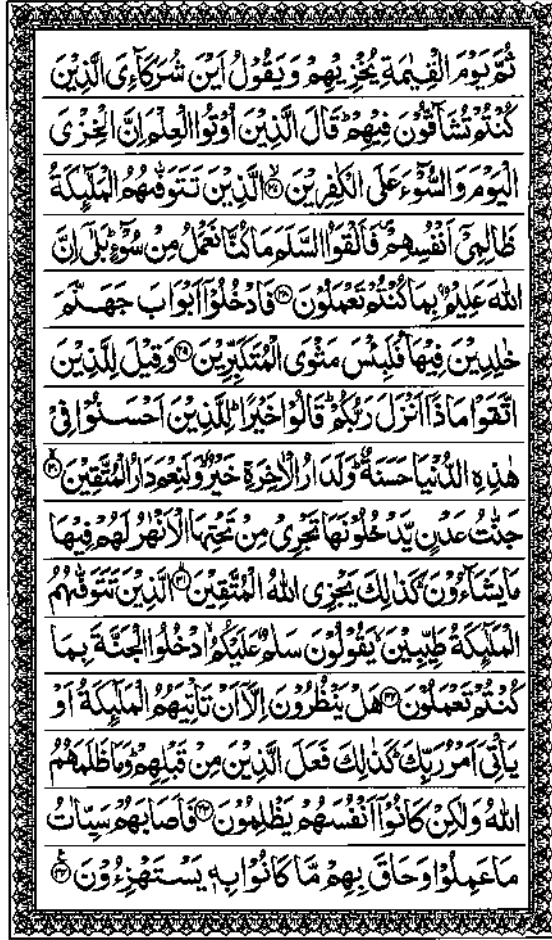 ثُمَّ يَوْمَ الْقِيٰمَةِ يُخْزِيْهِمْ وَيَقُوْلُ اَيْنَ شُرَكَآءِىَ الَّذِيْنَ
كُنْتُمْ تُشَآقُّوْنَ فِيْهِمْؕ قَالَ الَّذِيْنَ اُوْتُوا الْعِلْمَ اِنَّ الْخِزْىَ
الْيَوْمَ وَالسُّوْٓءَ عَلَى الْكٰفِرِيْنَۙ۝۲۷ الَّذِيْنَ تَتَوَفّٰىهُمُ الْمَلٰٓئِكَةُ
ظَالِمِىْٓ اَنْفُسِهِمْ۪ فَاَلْقَوُا السَّلَمَ مَا كُنَّا نَعْمَلُ مِنْ سُوْٓءٍؕ بَلٰٓى اِنَّ
اللّٰهَ عَلِيْمٌۢ بِمَا كُنْتُمْ تَعْمَلُوْنَ۝۲۸ فَادْخُلُوْٓا اَبْوَابَ جَهَنَّمَ
خٰلِدِيْنَ فِيْهَاؕ فَلَبِئْسَ مَثْوَى الْمُتَكَبِّرِيْنَ۝۲۹ وَقِيْلَ لِلَّذِيْنَ
اتَّقَوْا مَاذَآ اَنْزَلَ رَبُّكُمْؕ قَالُوْا خَيْرًاؕ لِلَّذِيْنَ اَحْسَنُوْا فِىْ
هٰذِهِ الدُّنْيَا حَسَنَةٌؕ وَلَدَارُ الْاٰخِرَةِ خَيْرٌؕ وَلَنِعْمَ دَارُ الْمُتَّقِيْنَۙ۝۳۰
جَنّٰتُ عَدْنٍ يَّدْخُلُوْنَهَا تَجْرِىْ مِنْ تَحْتِهَا الْاَنْهٰرُ لَهُمْ فِيْهَا
مَا يَشَآءُوْنَؕ كَذٰلِكَ يَجْزِى اللّٰهُ الْمُتَّقِيْنَۙ۝۳۱ الَّذِيْنَ تَتَوَفّٰىهُمُ
الْمَلٰٓئِكَةُ طَيِّبِيْنَۙ يَقُوْلُوْنَ سَلٰمٌ عَلَيْكُمُۙ ادْخُلُوا الْجَنَّةَ بِمَا
كُنْتُمْ تَعْمَلُوْنَ۝۳۲ هَلْ يَنْظُرُوْنَ اِلَّآ اَنْ تَاْتِيَهُمُ الْمَلٰٓئِكَةُ اَوْ
يَاْتِىَ اَمْرُ رَبِّكَؕ كَذٰلِكَ فَعَلَ الَّذِيْنَ مِنْ قَبْلِهِمْؕ وَمَا ظَلَمَهُمُ
اللّٰهُ وَلٰكِنْ كَانُوْٓا اَنْفُسَهُمْ يَظْلِمُوْنَ۝۳۳ فَاَصَابَهُمْ سَيِّاٰتُ
مَا عَمِلُوْا وَحَاقَ بِهِمْ مَّا كَانُوْا بِهٖ يَسْتَهْزِءُوْنَ۝۳۴